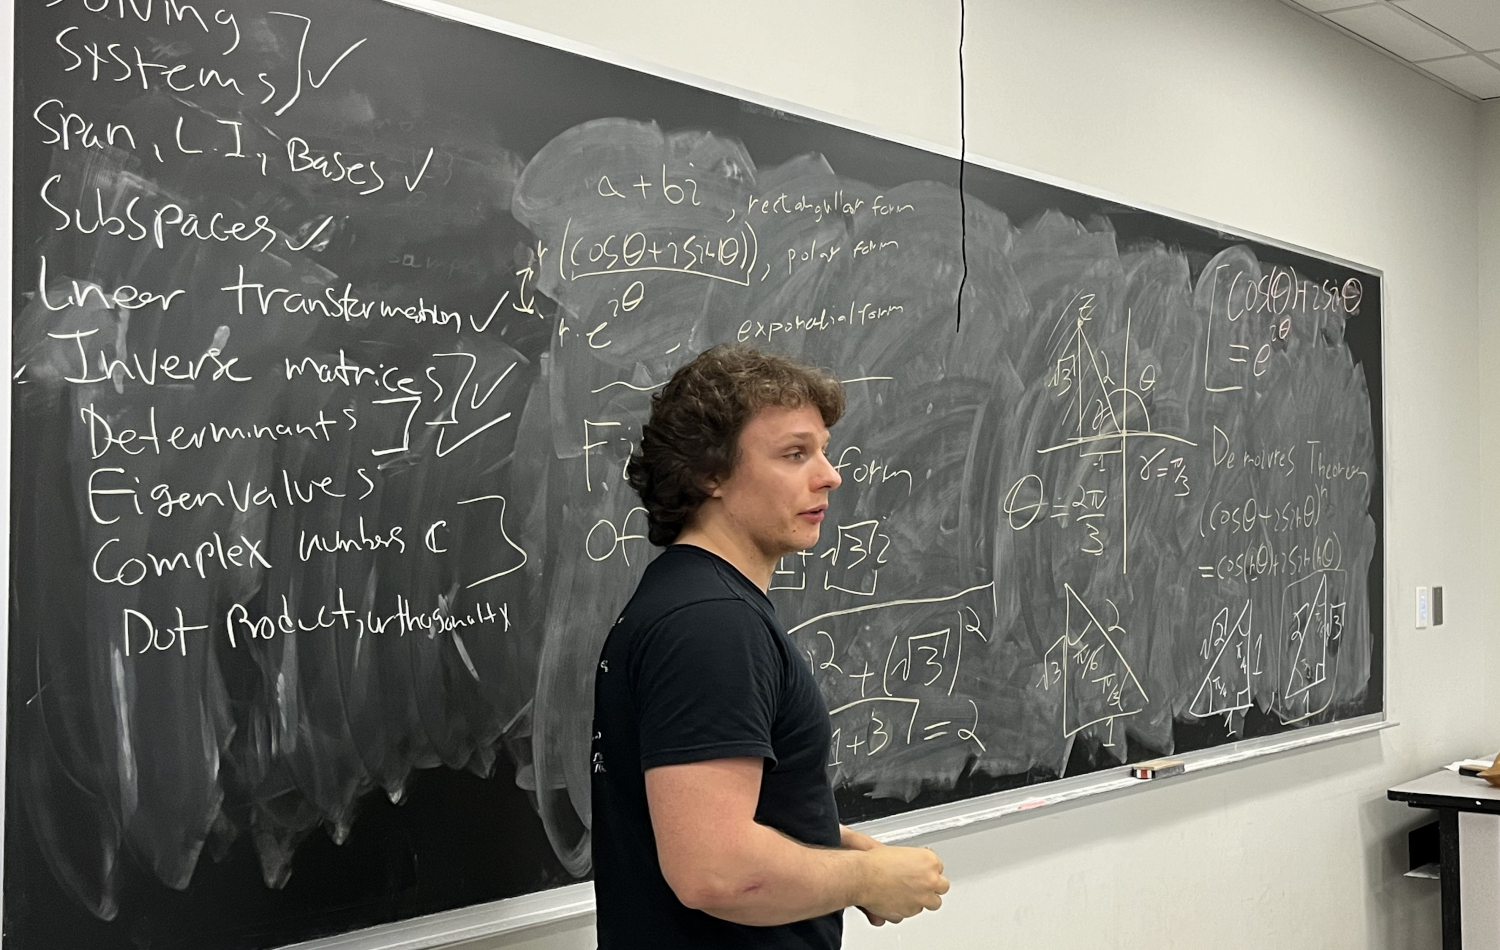 Solving
Systems ✓
Span, L.I, Bases ✓
Subspaces ✓
Linear transformation ✓
Inverse matrices ✓
Determinants ✓
Eigenvalues
Complex numbers ℂ
Dot Product, orthogonality
a + bi, rectangular form
r(cosθ + i sinθ), polar form
r · e^iθ, exponential form
form
of √3 i
² + (√3)²
1+3 = 2
z
√3 2 θ
γ
-1
γ = π/3
θ = 2π/3
√3 2 π/6 π/3
1
cos(θ) + i sinθ
= e^iθ
De moivres Theorem
(cosθ + i sinθ)^n
= cos(nθ) + i sin(nθ)
√2 π/4 π/4 1
1
2 √3
1